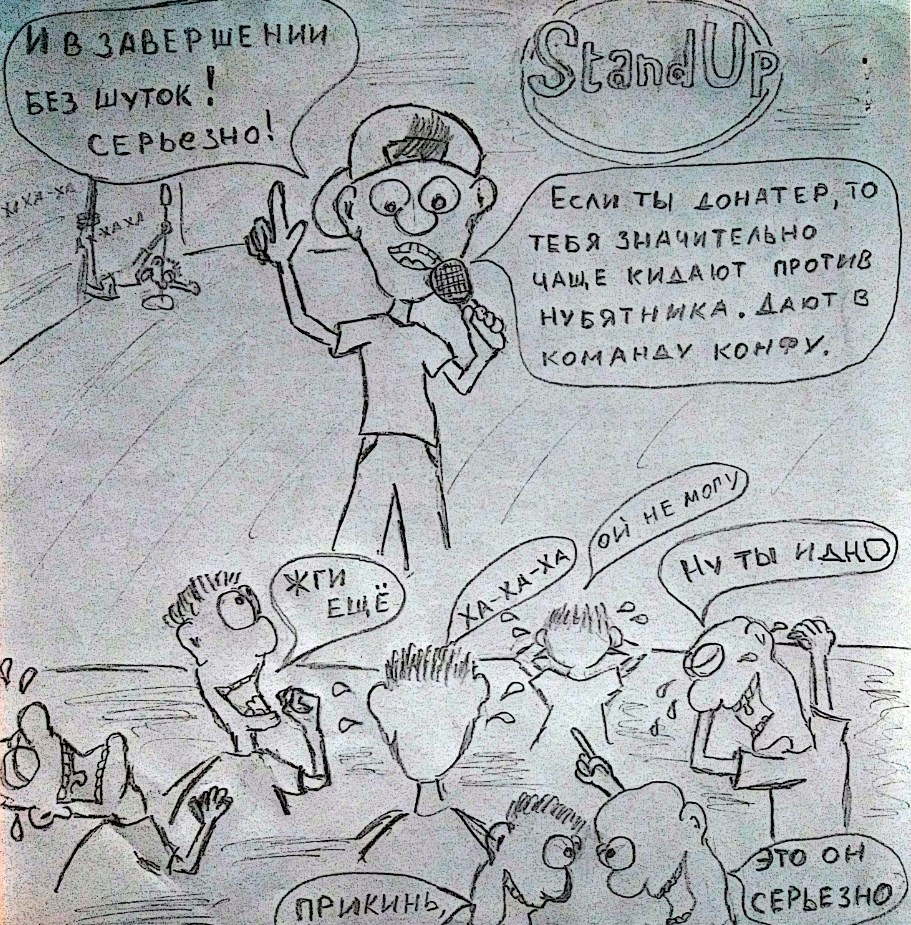 И В ЗАВЕРШЕНИИ
БЕЗ ШУТОК!
СЕРЬеЗНО!
StandUp
ЕСЛИ ТЫ ДОНАТЕР, ТО
ТЕБЯ ЗНАЧИТЕЛЬНО
ЧАЩЕ КИДАЮТ ПРОТИВ
НУБЯТНИКА. ДАЮТ В
КОМАНДУ КОНФУ.
ХА ХА-ХА
АХ-ХАХА
ОЙ НЕ МОГУ
ЖГИ
ЕЩЁ
ХА-ХА-ХА
НУ ТЫ И ДНО
ПРИКИНЬ,
ЭТО ОН
СЕРЬЕЗНО